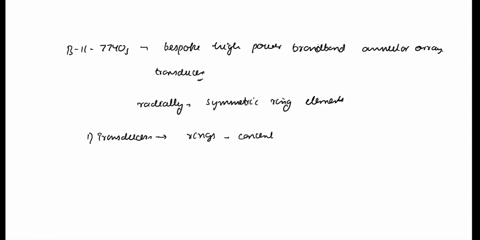 B-11-7740, → bespoke high power broadband annular array
transducer
radially, symmetric ring elements
1) Transducers → rings - concent